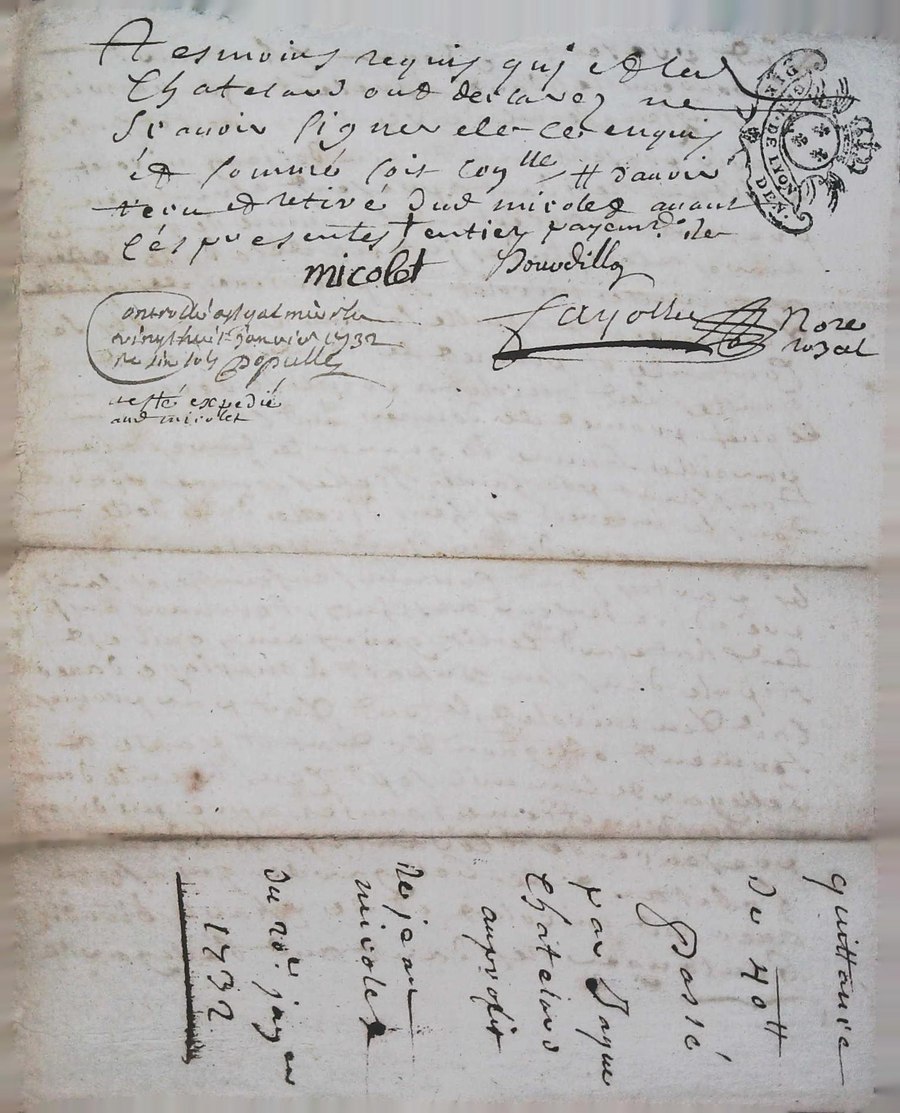 tesmoins requis quj et led
Chatelard ont declarez ne
scavoir signer de ce enquis
et sommé soit conlle ##davoir
receu et retiré dud micolet avant
ces presentes entier payemt. de
micolet
fayolle Nore
royal
Controllé a st galmier le
vingthuit janvier 1732
Populle
resté expedié
aud micolet
GEN. DE LYON
quittance
De 40tt
Passé
par Jaque
Chatelard
auprofit
De jean
micolet
Du 20e janer
1732